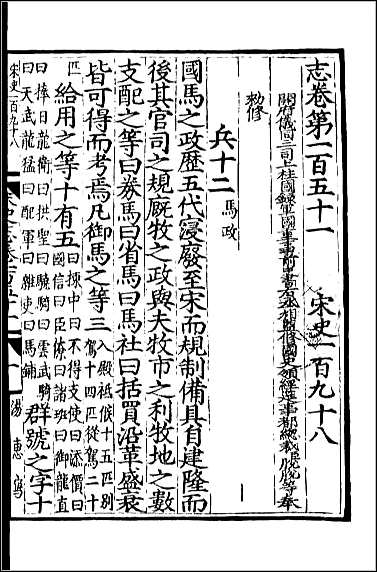 志卷第一百五十一　宋史一百九十八
開府儀同三司上柱國錄軍國重事前中書右丞相監修國史領經筵事都總裁脫脫等奉
敕修
兵十二　馬政
國馬之政歷五代寖廢至宋而規制備具自建隆而
後其官司之規廄牧之政與夫牧市之利牧地之數
支配之等曰券馬曰省馬曰馬社曰括買沿革盛衰
皆可得而考焉凡御馬之等三入殿祗候十五匹別駕十四匹從駕二十
匹給用之等十有五曰揀中曰不得支使曰添價曰國信曰臣僚曰諸班曰御龍直
曰捧日龍衛曰拱聖曰驍騎曰雲武騎曰天武龍猛曰配軍曰雜使曰馬鋪群號之字十
宋史一百九十八
湯惠寫